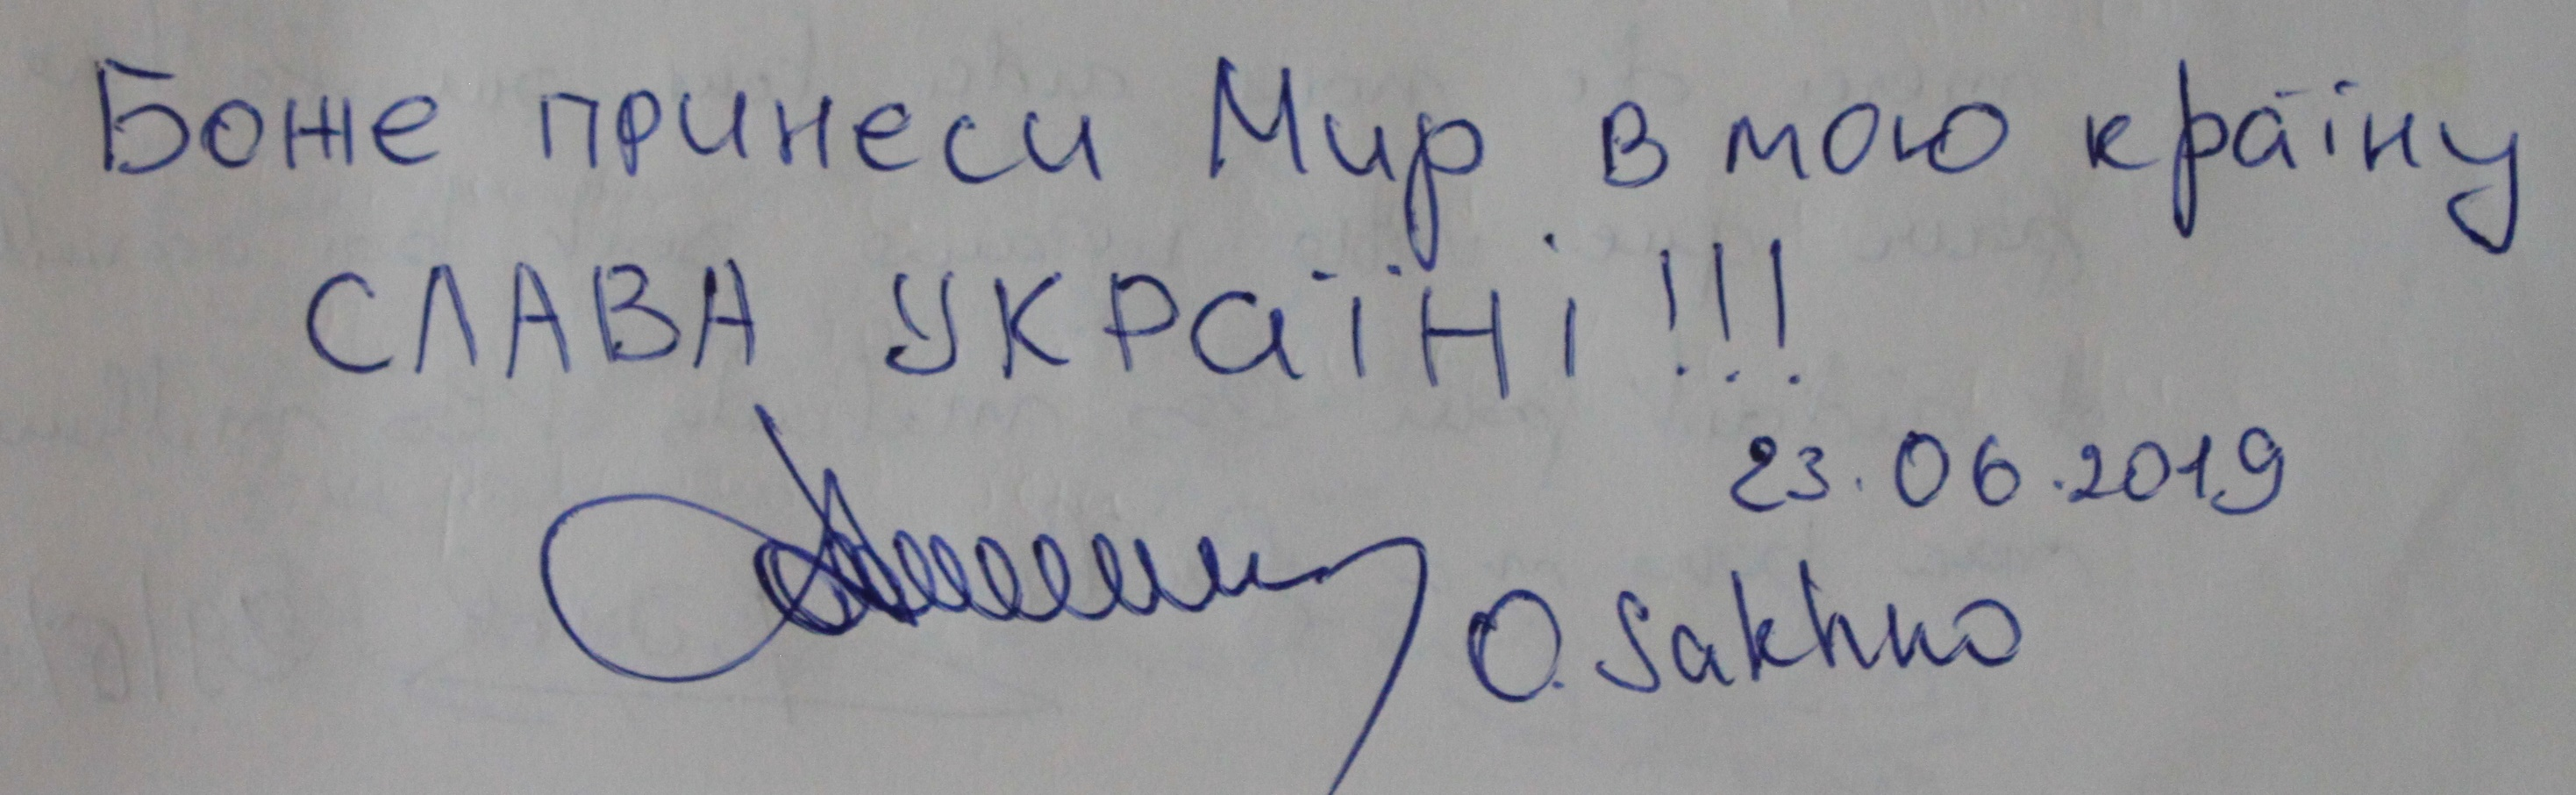 Боже принеси Мир в мою країну
СЛАВА УКРаїНі!!!
23.06.2019
O. Sakhno